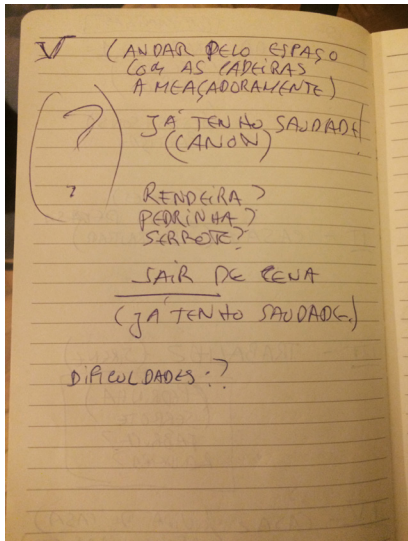 V (ANDAR PELO ESPAÇO
COM AS CADEIRAS
AMEAÇADORAMENTE)
(?) JÁ TENHO SAUDADE
(CANON)
?
RENDEIRA?
PEDRINHA?
SERROTE?
SAIR DE CENA
(JÁ TENHO SAUDADE)
DIFICULDADES:?